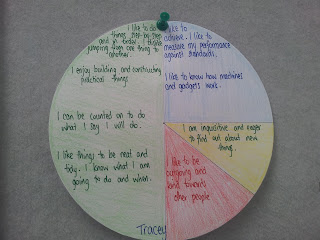 I like to do
things step-by-step
and in order. I dislike
jumping from one thing to
another.
I enjoy building and constructing
practical things
I can be counted on to do
what I say I will do.
I like things to be neat and
tidy. I know what I am
going to do and when.
like to
achieve. I like to
measure my performance
against standards.
I like to know how machines
and gadgets work.
I am inquisitive and eager
to find out about new
things.
I like to be
outgoing and
kind towards
other people
Tracey